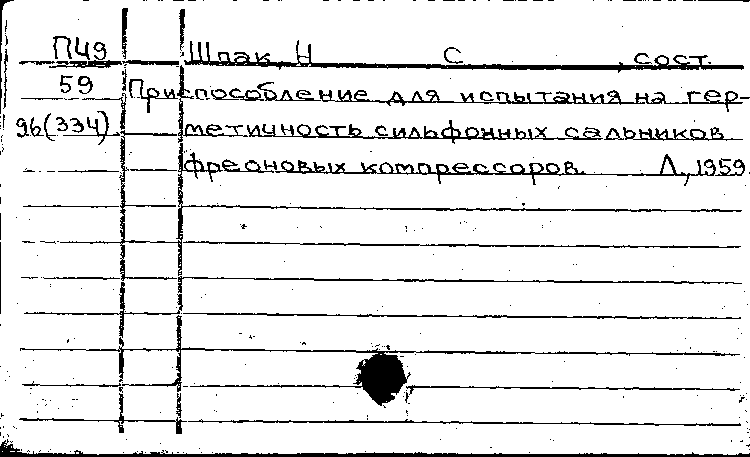 П49 Шпак, Н С , сост.
59 Приспособление для испытания на гер-
96(334) метичность сильфонных сальников
фреоновых компрессоров. Л., 1959.